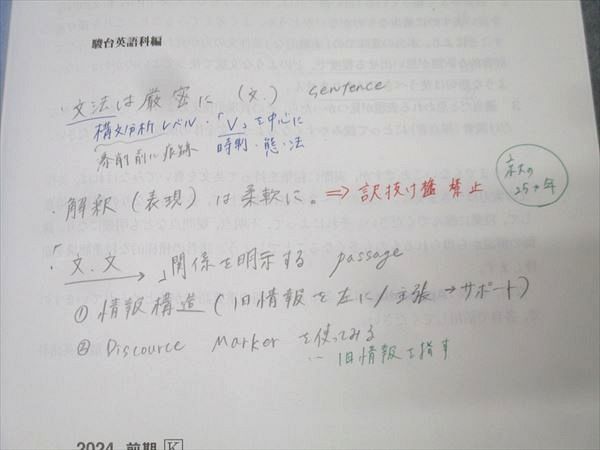 駿台英語科編
・文法は厳密に (文) sentence
構文分析レベル・「V」を中心に
時制・態・法
・解釈 (表現) は柔軟に。 ⇒ 訳抜け 禁止
25ヶ年
・「文.文」関係を明示する passage
① 情報構造 (旧情報を左に/主張→サポート)
② Discource Marker を使ってみる
… 旧情報を指す
2024 前期 K